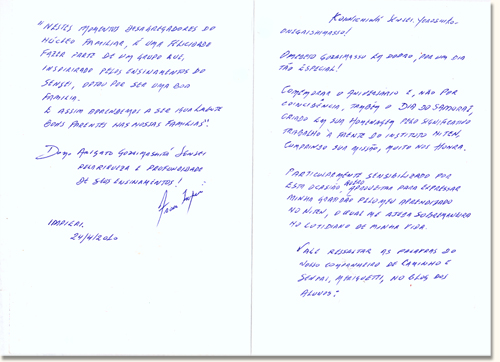 "NESTES MOMENTOS DESAGREGADORES DO
NÚCLEO FAMILIAR, É UMA FELICIDADE
FAZER PARTE DE UM GRUPO QUE,
INSPIRADO PELOS ENSINAMENTOS DO
SENSEI, OPTOU POR SER UMA BOA
FAMILIA.
E ASSIM APRENDEMOS A SER IGUALMENTE
BONS PARENTES NAS NOSSAS FAMÍLIAS".
DOMO ARIGATO GOZAIMASHITÁ SENSEI
PELA RIQUEZA E PROFUNDIDADE
DE SEUS ENSINAMENTOS!
24/4/2020
KONNICHIWA SENSEI, YOROSHIKU-
ONEGAISHIMASSU!
OMEDETO GOZAIMASSU EM DOBRO, POR UM DIA
TÃO ESPECIAL!
COMEMORAR O ANIVERSARIO E, NÃO POR
COINCIDÊNCIA, TAMBÉM O DIA DO SAMURAI,
CRIADO EM SUA HOMENAGEM PELO SIGNIFICATIVO
TRABALHO À FRENTE DO INSTITUTO NITEN,
CUMPRINDO SUA MISSÃO, MUITO NOS HONRA.
PARTICULARMENTE SENSIBILIZADO POR
ESTA OCASIÃO, APROVEITAR PARA EXPRESSAR
MINHA GRATIDÃO PELO MEU APRENDIZADO
NO NITEN, O QUAL ME AJUDA SOBREMANEIRA
NO COTIDIANO DE MINHA VIDA.
VALE RESSALTAR AS PALAVRAS DO
NOSSO COMPANHEIRO DE CAMINHO E
SENPAI, MERIGUETTI, NO BLOG DOS
ALUNOS:-